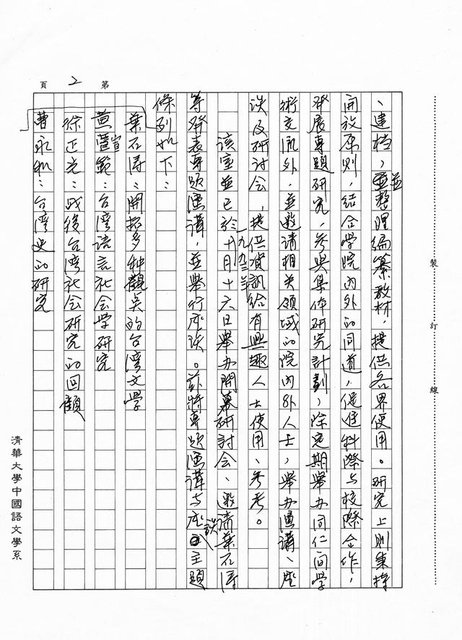 第 2 頁
裝 訂 線
、建檔，並整理編纂教材，提供各界使用。研究上則秉持
開放原則，結合學院內外的同道，促進科際與校際合作，
發展專題研究，參與集体研究計劃，除定期舉办同仁間學
術交流外，並邀請相关領域的院內外人士，舉办演講、座
談及研討会，提供資訊給有興趣人士使用、參考。
該室並已於一九九二年十月十六日舉办開幕研討会、邀請葉石濤
等發表專題演講，並舉行座談。茲將專題演講与座談主題
條列如下：
葉石濤：開拓多种觀点的台灣文學
黃宣範：台灣語言社会學研究
徐正光：战後台灣社会研究的回顧
曹永和：台灣史的研究
清華大學中國語文學系